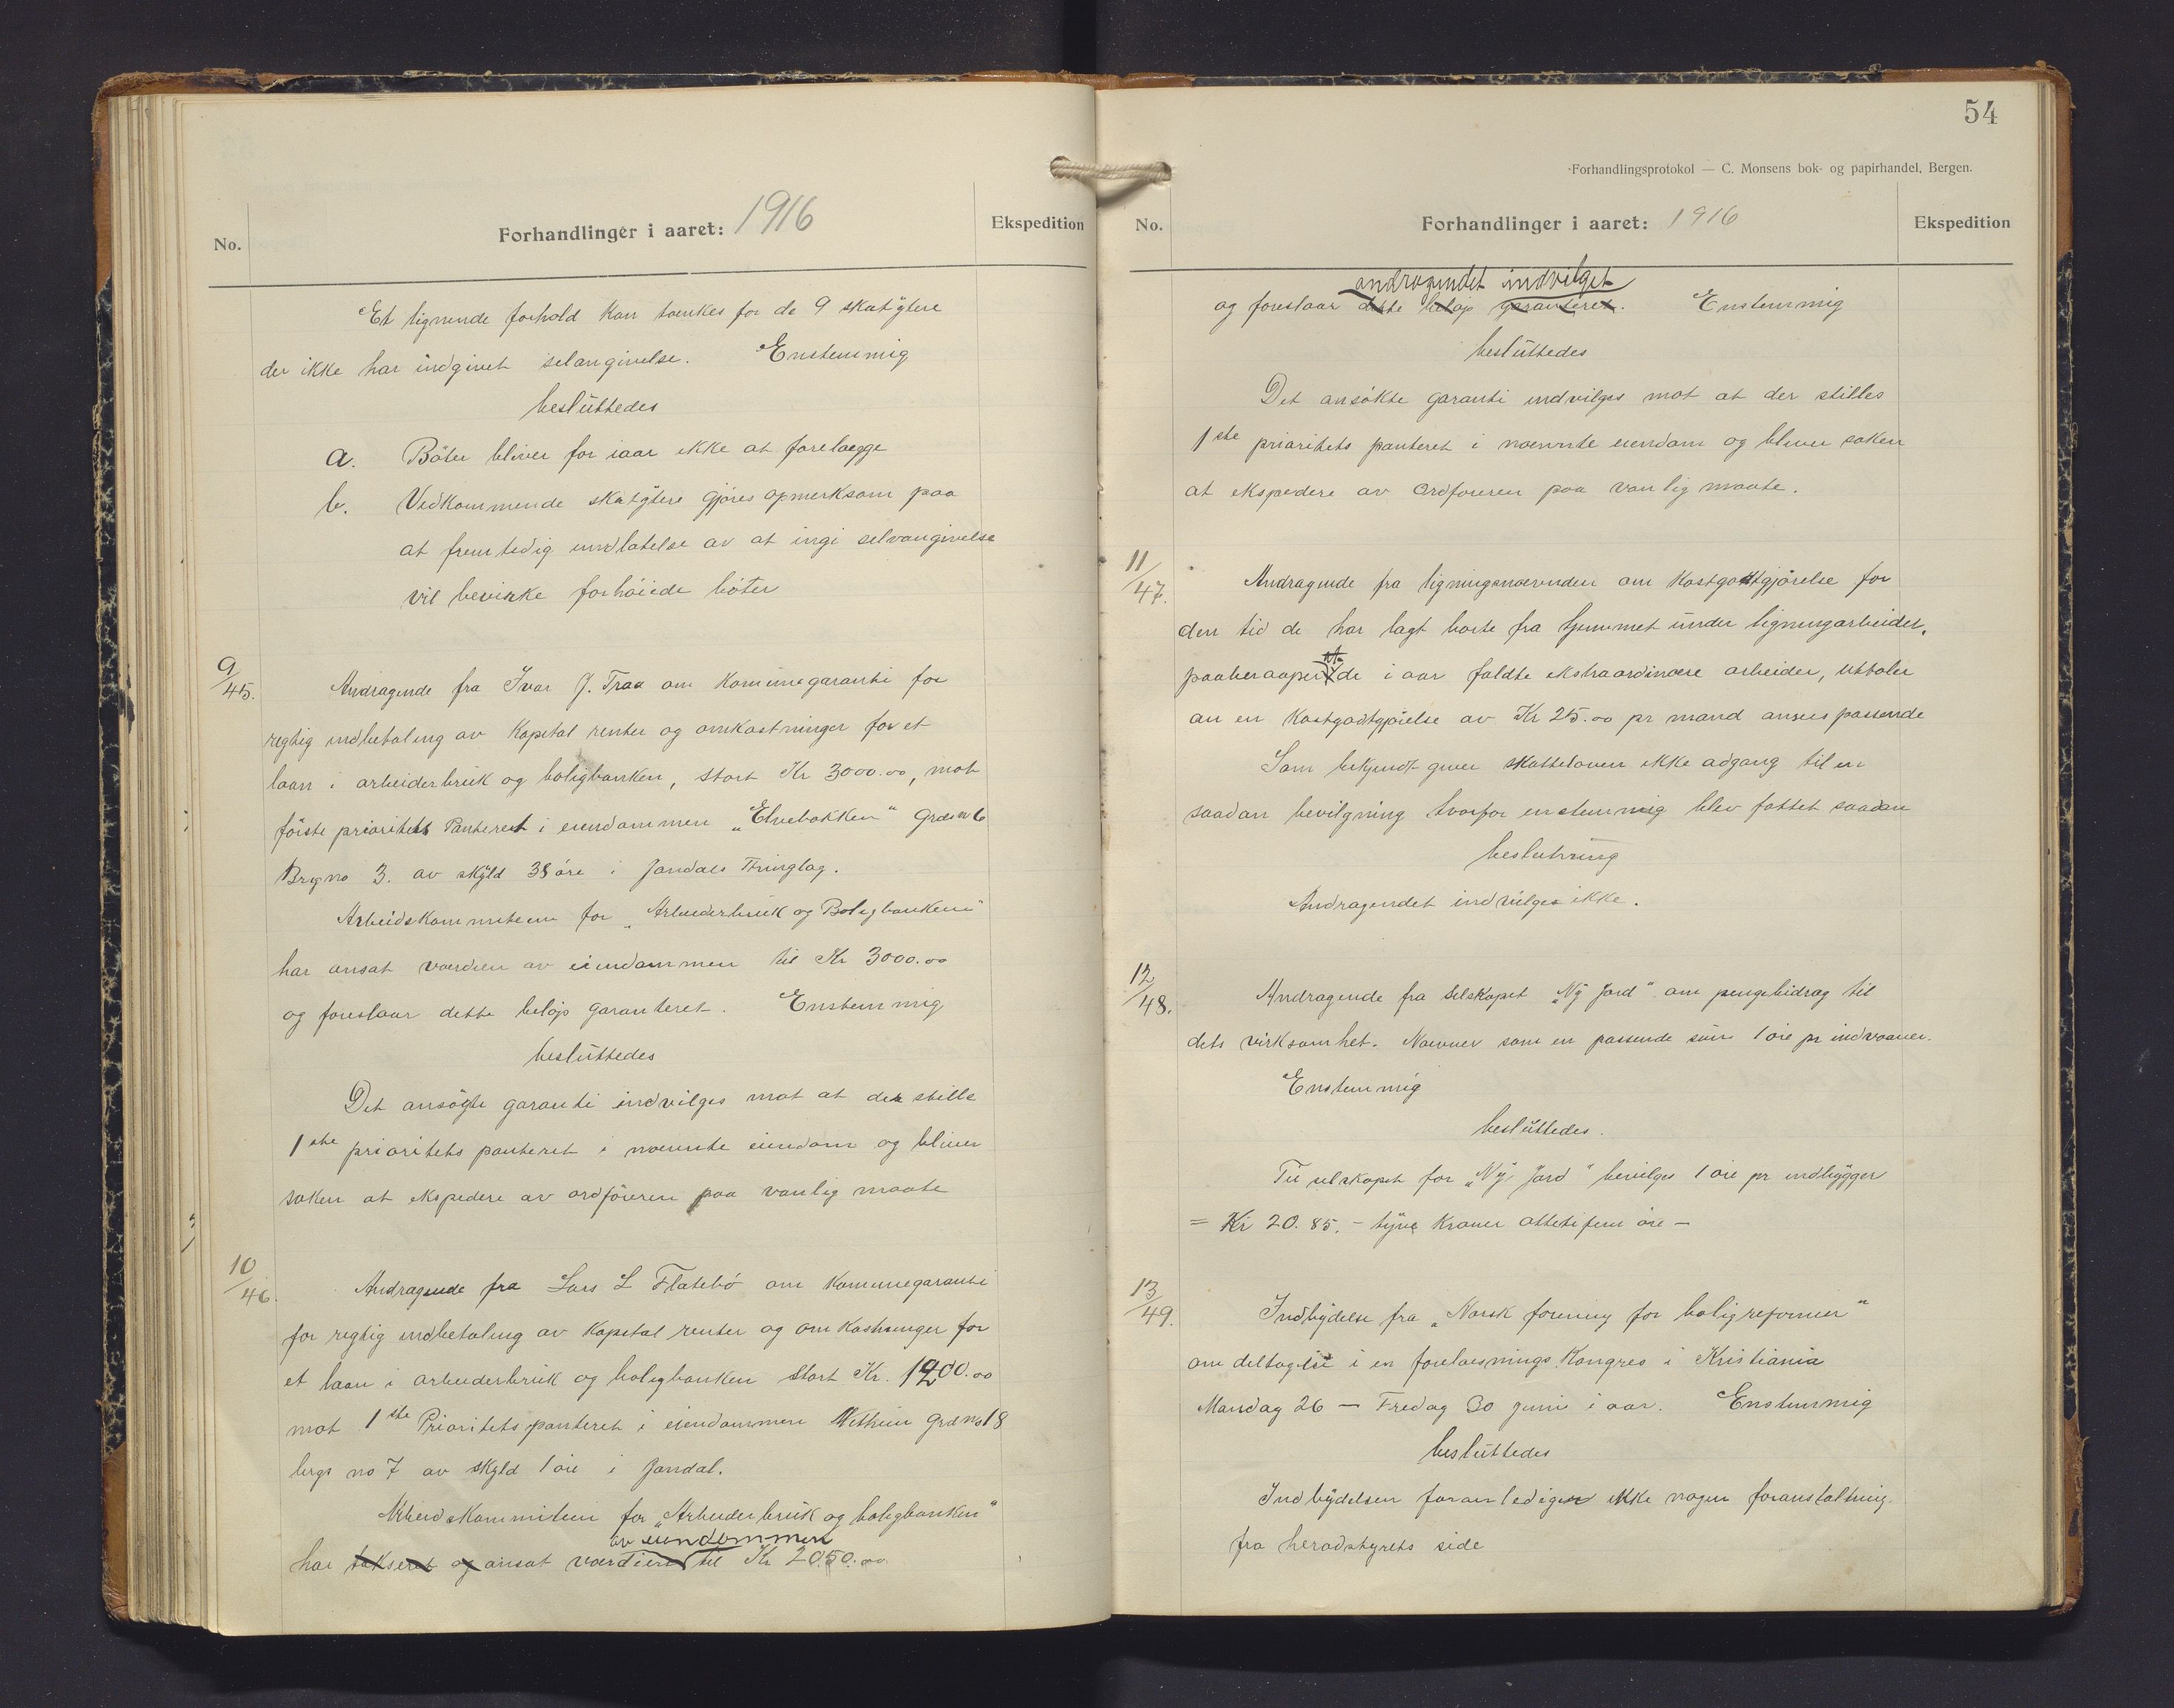 No.
Forhandlinger i aaret: 1916
Ekspedition
Et lignende forhold kan tænkes for de 9 skatytere
der ikke har indgivet selangivelse. Enstemmig
besluttedes
a. Böter bliver for iaar ikke at forelægge
b. Vedkommende skatytere gjöres opmerksom paa
at fremtidig undlatelse av at ingi selvangivelse
vil bevirke forhöiede böter
9/45. Andragende fra Ivar J. Traa om kommunegaranti for
regtig indbetaling av kapital renter og omkostninger for et
laan i arbeiderbruk og boligbanken, stort Kr 3000.00, mot
förste prioritets Panteret i eiendommen "Elvebakken" Grds no 6
Brgs no 3. av skyld 38 öre i Jondals Thinglag.
Arbeidskommiteem for "Arbeiderbruk og Boligbanken"
har ansat værdien av eiendommen til Kr 3000.00
og foreslaar dette belöp garanteret. Enstemmig
besluttedes
Det ansögte garanti indvilges mot at der stille
1ste prioritets panteret i nævnte eiendom og bliver
saken at ekspedere av ordföreren paa vanlig maate
10/46. Andragende fra Lars L Flatebö om kommunegaranti
for regtig indbetaling av kapital renter og omkostninger for
et laan i arbeiderbruk og boligbanken stort Kr. 1200.00
mot 1ste Prioritets panteret i eiendommen Vethun Grds no 18
brgs no 7 av skyld 1 öre i Jondal.
Arbeidskommiteen for "Arbeiderbruk og boligbanken"
av eiendommen
har takseret og ansat værdien til Kr 2050.00
54
Forhandlingsprotokol — C. Monsens bok- og papirhandel, Bergen.
No.
Forhandlinger i aaret: 1916
Ekspedition
andragendet indvilget
og foreslaar dette belöp garanteret. Enstemmig
besluttedes
Det ansökte garanti indvilges mot at der stilles
1ste prioritets panteret i nævnte eiendom og bliver saken
at ekspedere av ordföreren paa vanlig maate.
11/47. Andragende fra ligningsnævnden om kostgodtgjörelse for
den tid de har lagt borte fra hjemmet under ligningarbeidet,
paaberaaper de i aar faldte ekstraordinære arbeider, uttaler
an en kostgodtgjörelse av Kr 25.00 pr mand ansees passende
Som bekjendt giver skatteloven ikke adgang til en
saadan bevilgning hvorfor enstemmig blev fattet saadan
beslutning
Andragendet indvilges ikke.
12/48. Andragende fra selskapet "Ny Jord" om pengebidrag til
dets virksomhet. Nævner som en passende sum 1 öre pr indvaaner.
Enstemmig
besluttedes.
Til selskapet for "Ny Jord" bevilges 1 öre pr indbygger
= Kr 20.85. - tyve kroner ottetifem öre -
13/49. Indbydelse fra "Norsk forening for boligreformer"
om deltagelse i en forelæsnings Kongres i Kristiania
Mandag 26 — Fredag 30 juni i aar. Enstemmig
besluttedes
Indbydelsen foranlediger ikke nogen foranstaltning
fra heradstyrets side